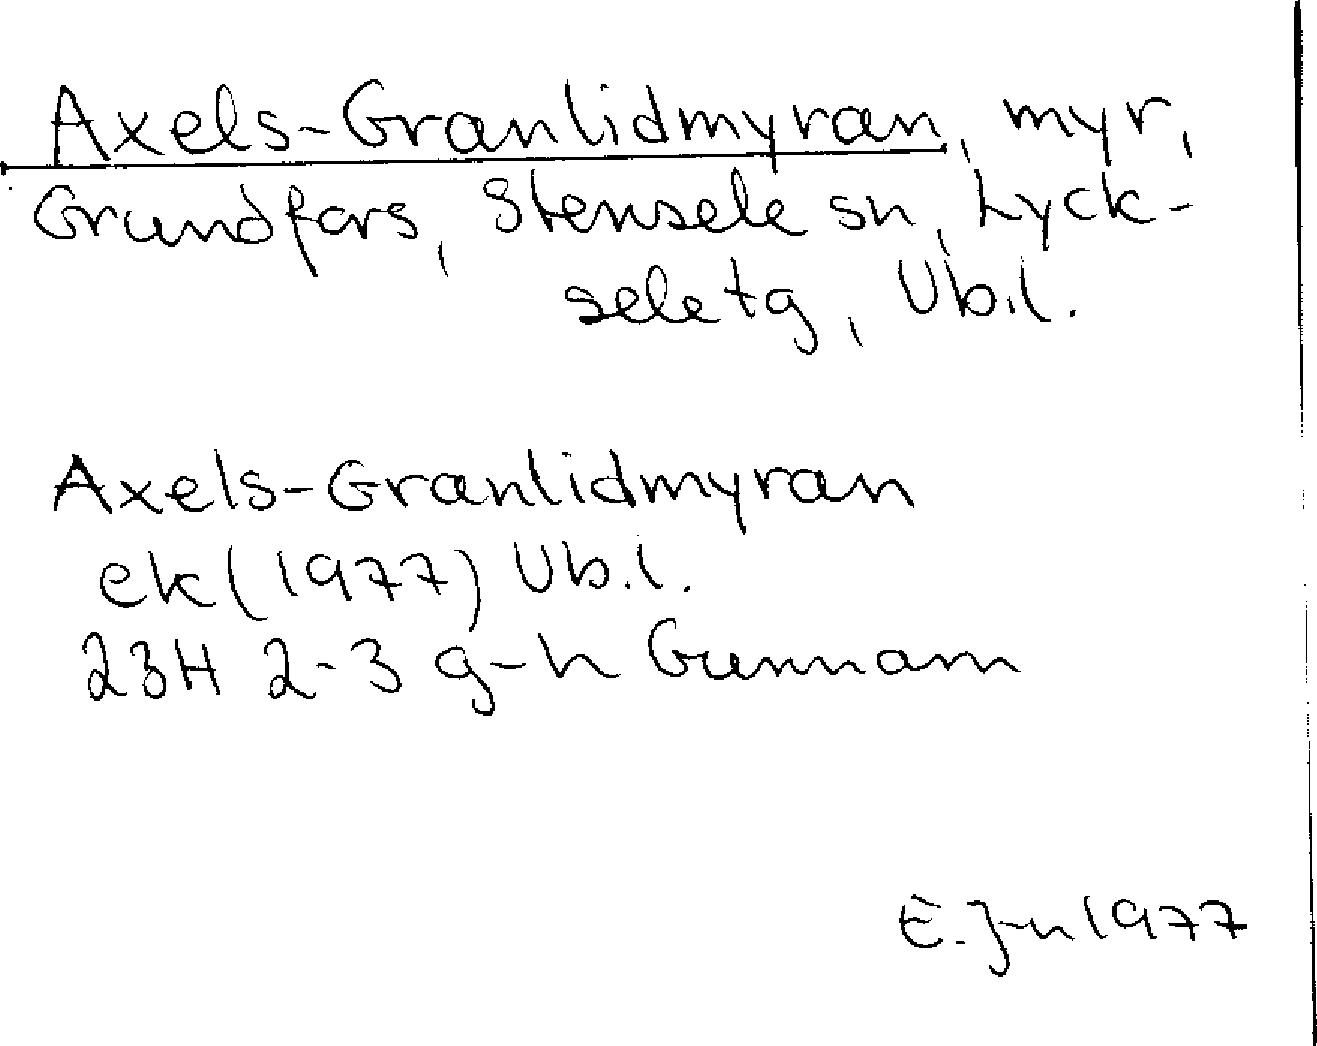 Axels-Granlidmyran, myr,
Grundfors, Stensele sn, Lyck-
sele tg, Vb.l.
Axels-Granlidmyran
ek (1977) Vb.l.
23H 2-3 g-h Gunnarn
E. J-n 1977